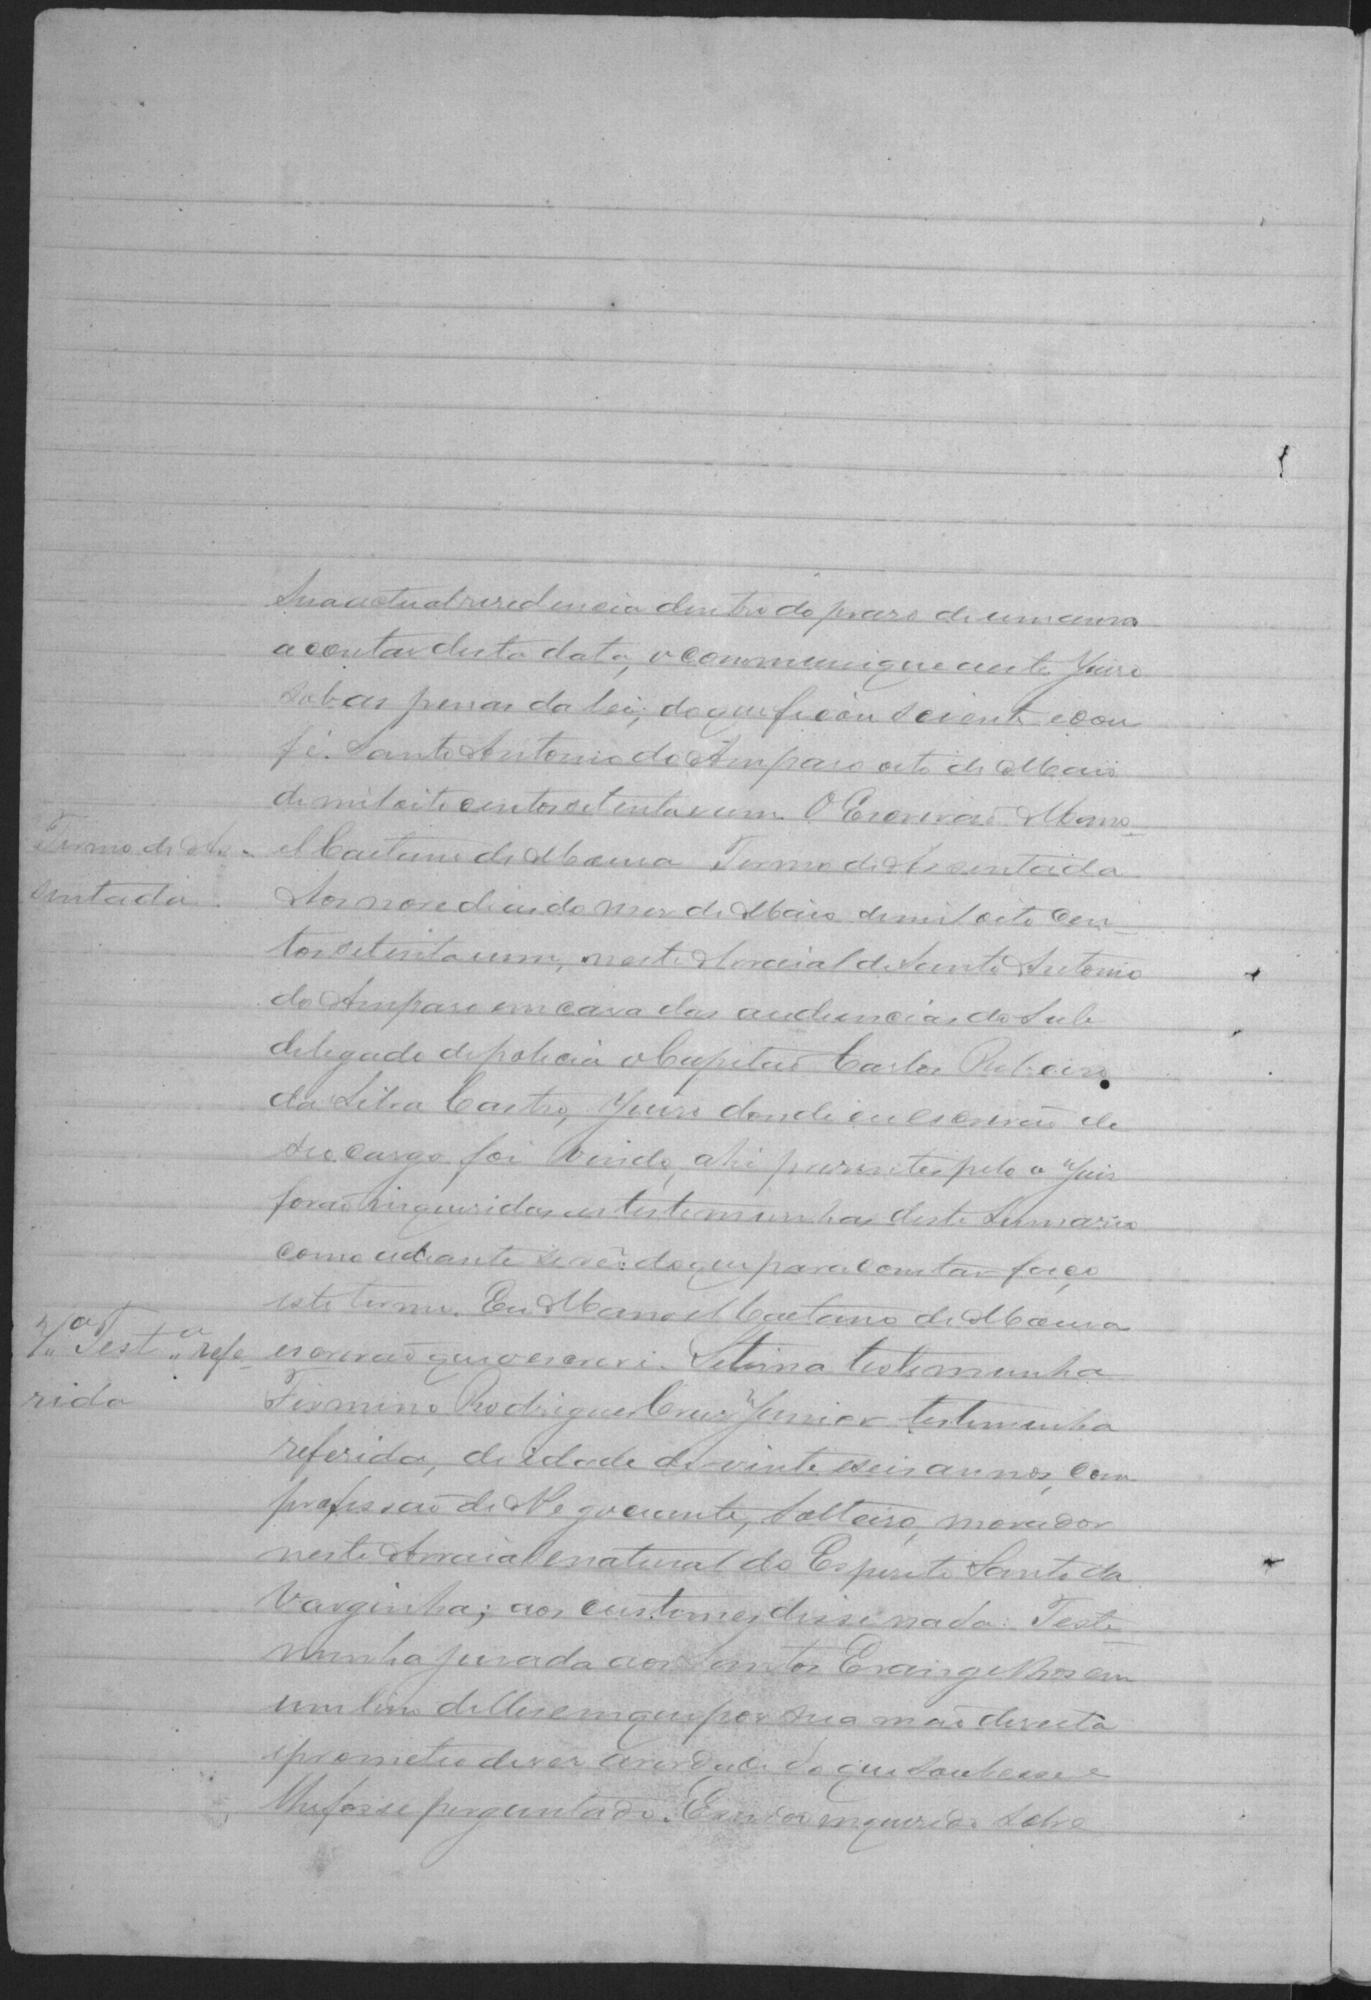 Sua actual residencia dentro do praso de um anno
a contar desta data, o communique a este Juiso
sob as penas da lei; do que ficou sciente e dou
fé. Santo Antonio do Amparo oito de Maio
de mil oito centos setenta e um. O Escrivaõ Mano-
Termo de As-
el Caetano de Moura Termo de Assentada
sentada.
Aos nove dias do mes de Maio de mil oito cen-
tos setenta e um, neste Arraial de Santo Antonio
do Amparo em casa das audiencias do Sub
delegado de policia o Capitaõ Carlos Ribeiro
da Silva Castro, Juiso donde eu escrivaõ de
seo cargo foi vindo, ahi presentes pelo o Juis
foraõ inqueridas as testemunhas deste Sumario
como adiante se vê: do que para constar faço
este termo. Eu Manoel Caetano de Moura
7,,a Test,,a refe-
escrivaõ que o escrevi. Setima testemunha
rida
Firmino Rodrigues Cruz Junior testemunha
referida, de idade de vinte e seis annos, com
profissaõ de Negociante, Solteiro, morador
neste Arraial e natural do Espirito Santo da
Varginha; aos custumes disse nada. Teste-
munha jurada aos Santos Evangelhos em
um livro delles em que pos sua maõ direita
e prometeo diser a verdade do que soubesse e
lhe fosse perguntado. E sendo inquerida sobre